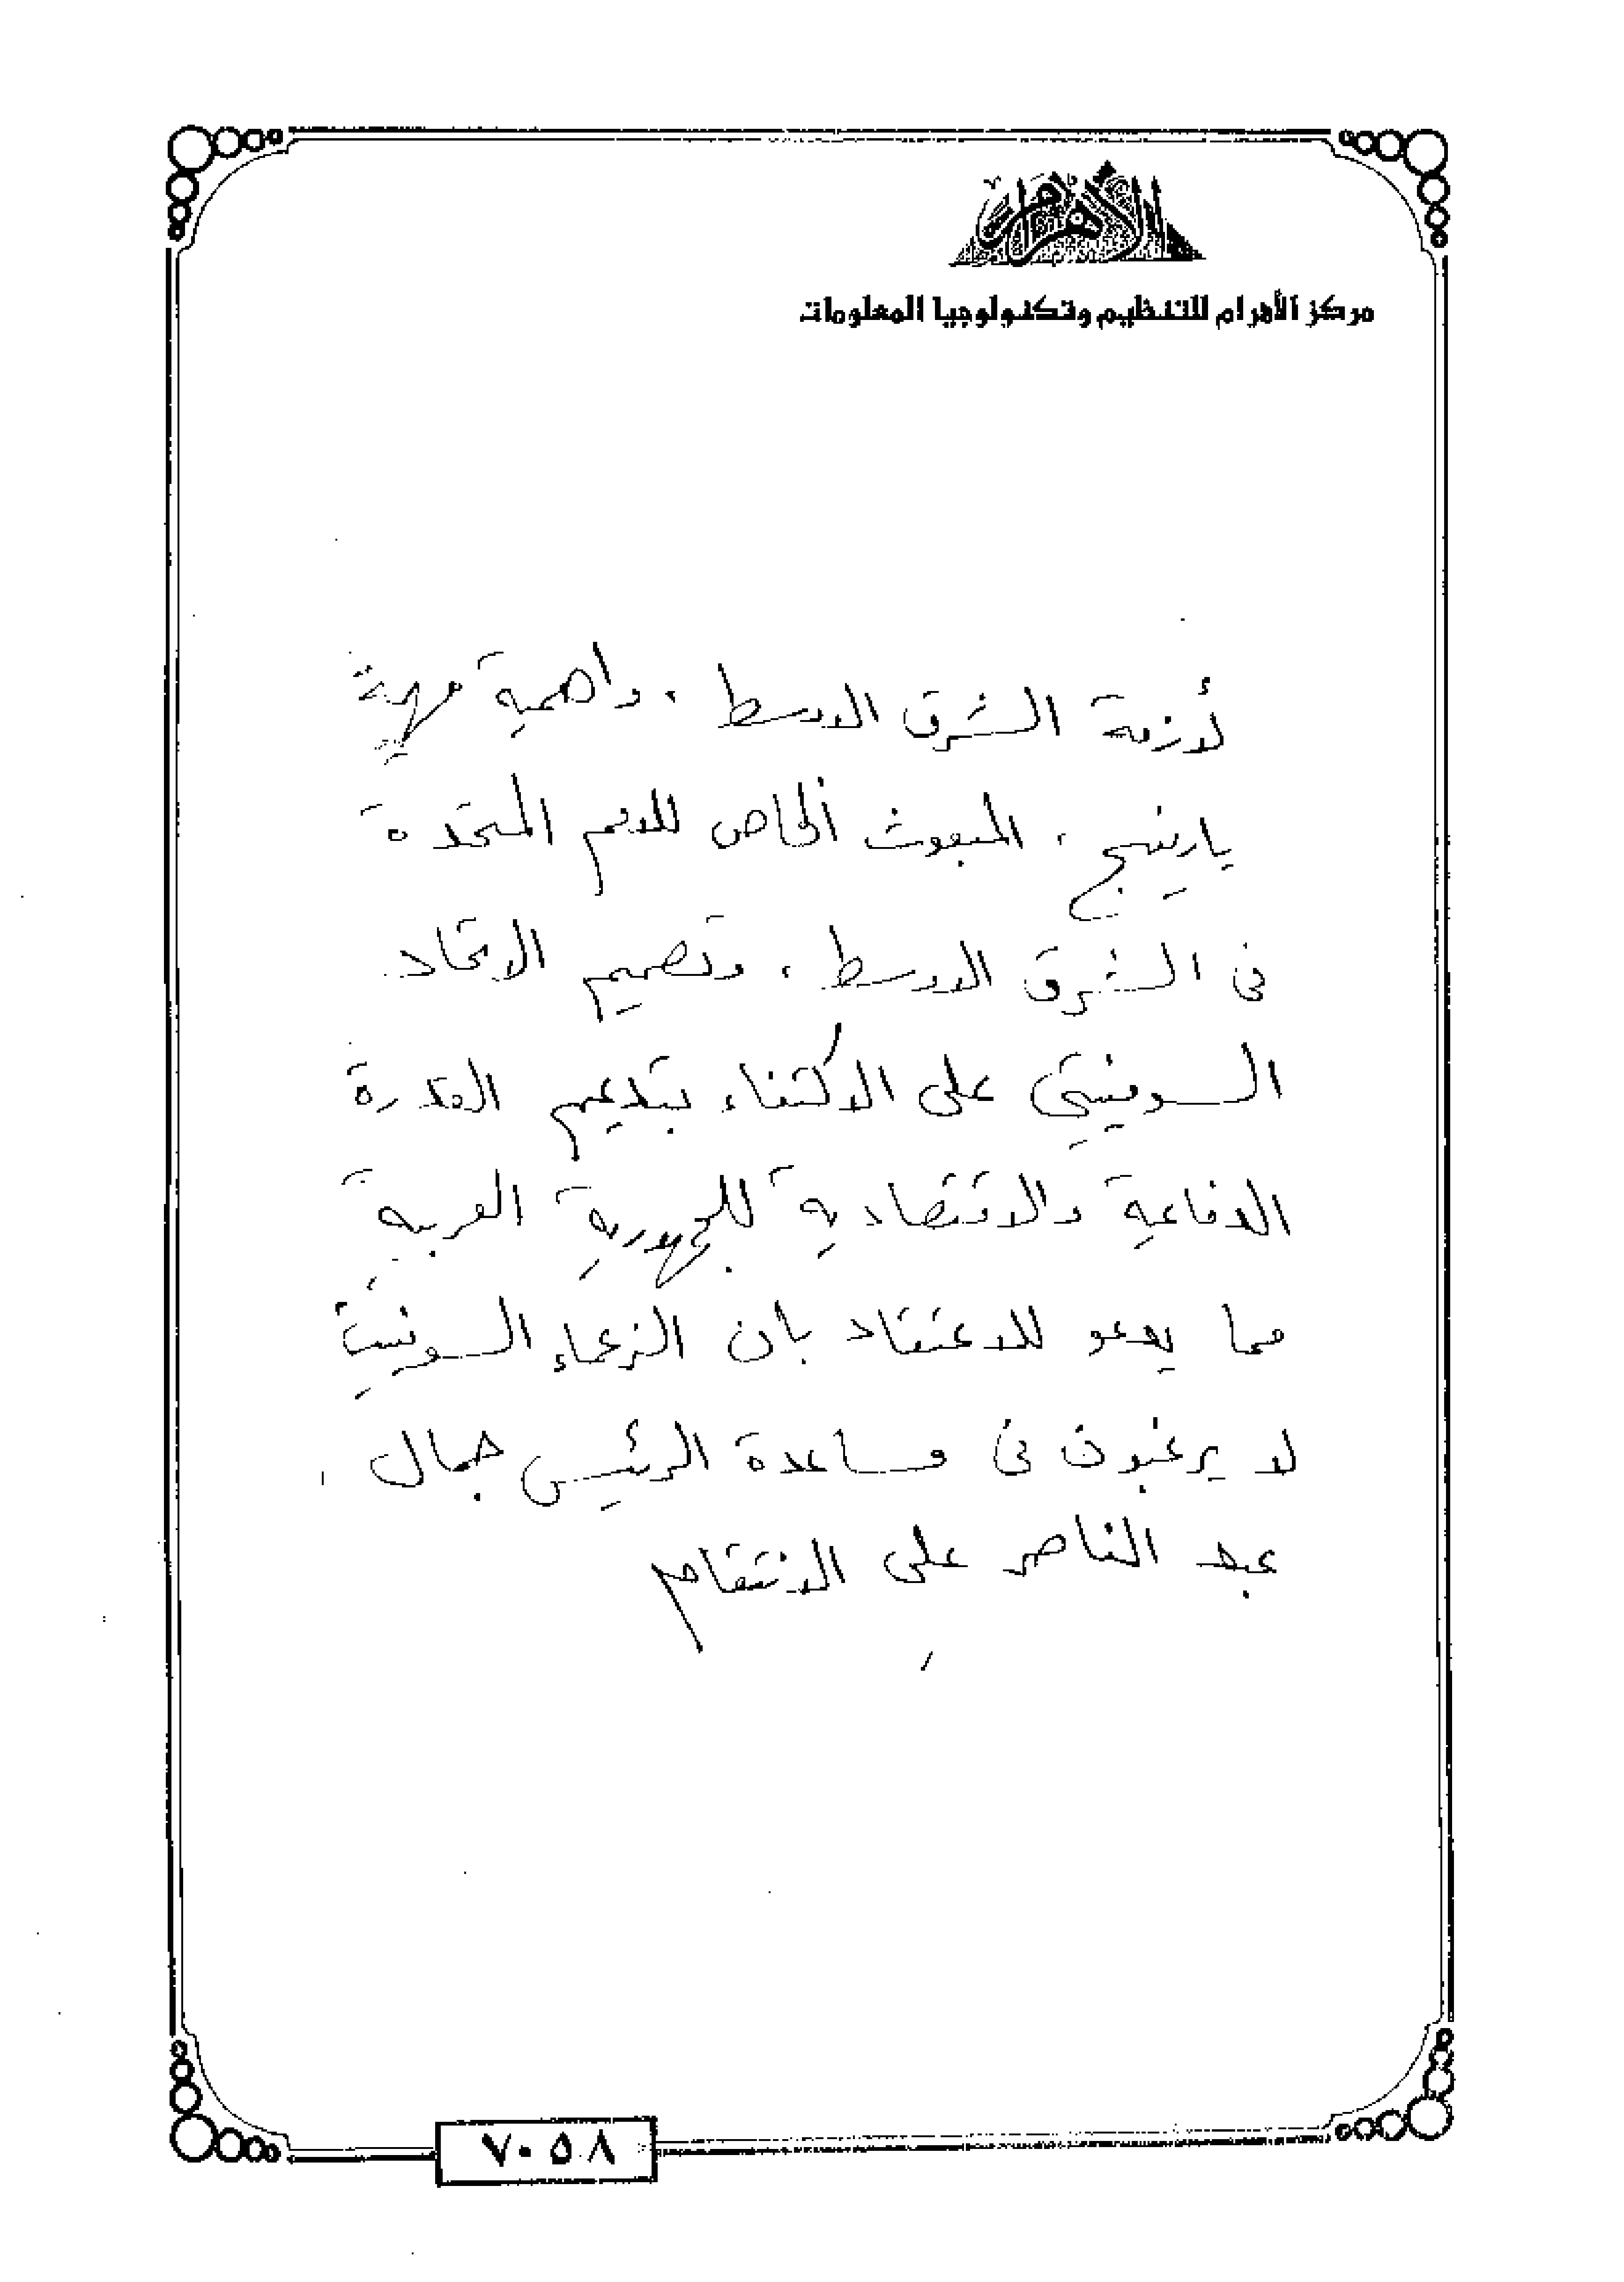 الأهرام
مركز الأهرام للتنظيم وتكنولوجيا المعلومات
لأزمة الشرق الاوسط ، واهمية مهمة
يارنج ، المبعوث الخاص للامم المتحدة
فى الشرق الاوسط ، وتصميم الاتحاد
السوفيتى على الاكتفاء بتدعيم القدرة
الدفاعية والاقتصادية للجمهورية العربية
مما يدعو للاعتقاد بان الزعماء السوفييت
لا يرغبون فى مساعدة الرئيس جمال
عبد الناصر على الانتقام
٧٠٥٨